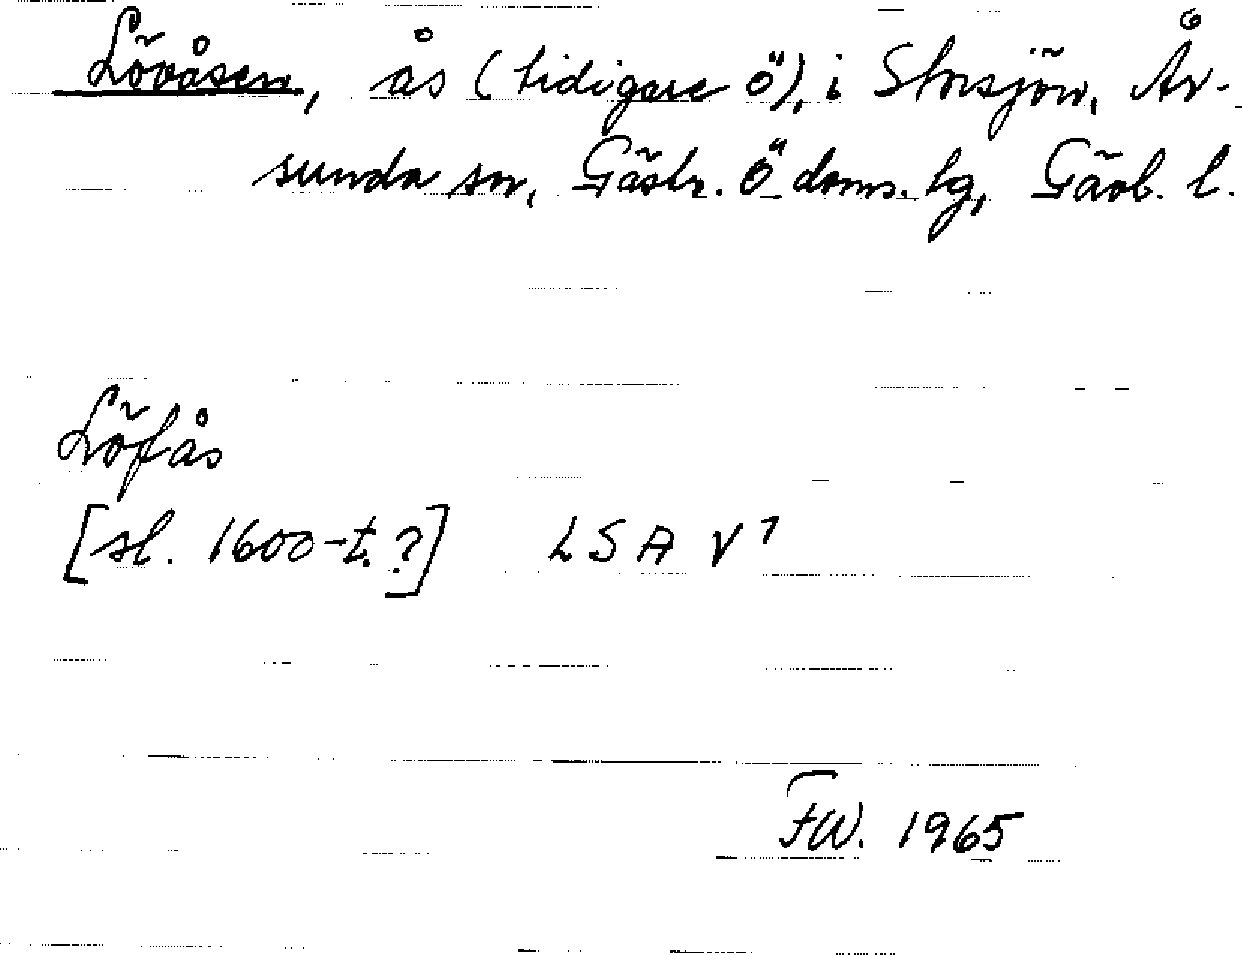 Lövåsen, ås (tidigare ö), i Storsjön, År-
sunda sn, Gästr. Ö doms. lg, Gävl. l.
Löfås
[sl. 1600-t.?] LSA V 1
FW. 1965